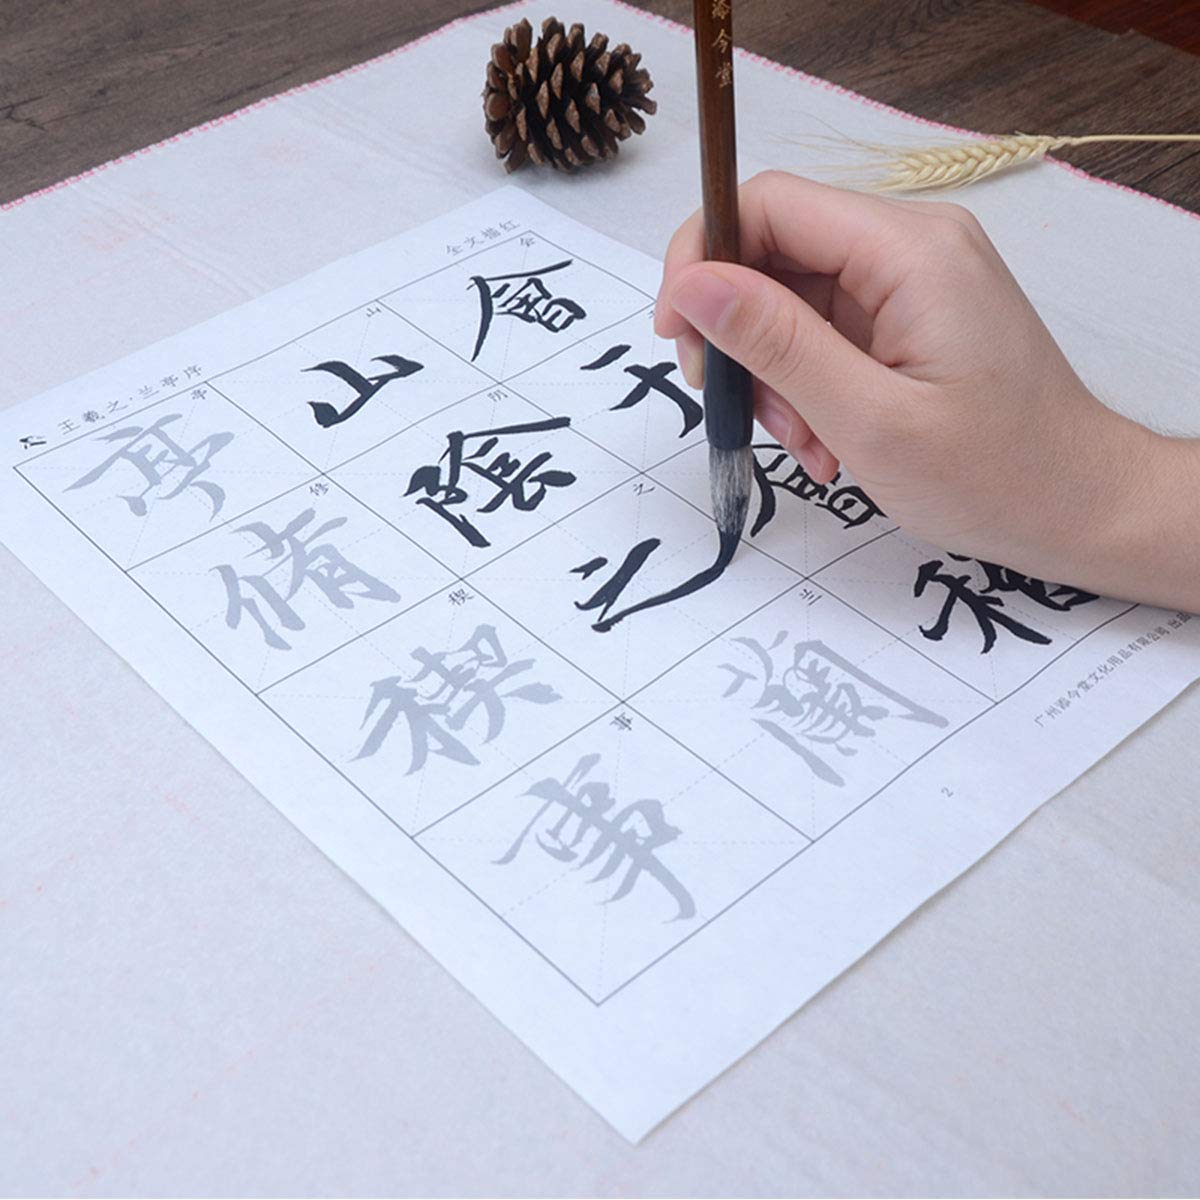 添今堂
王羲之·兰亭序
全文描红
會于會稽
山陰之蘭
亭脩禊事
会
山阴之兰
亭修禊事
广州添今堂文化用品有限公司 出
2